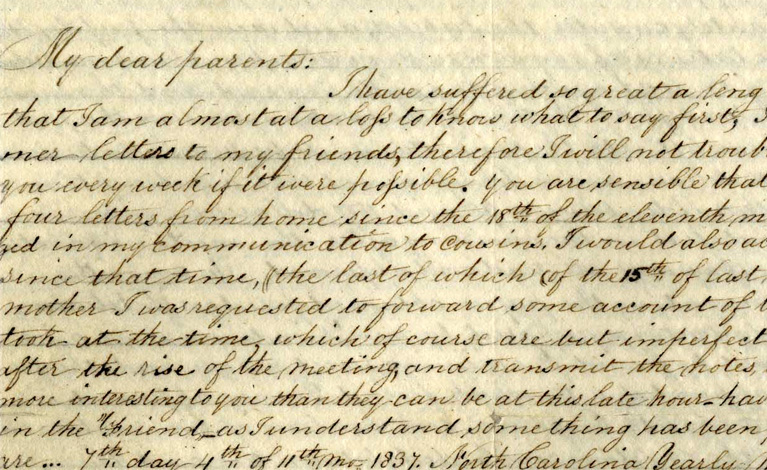 My dear parents:
I have suffered so great a leng
that I am almost at a loss to know what to say first, I
mer letters to my friends, therefore I will not troub
you every week if it were possible. You are sensible that
four letters from home since the 18th of the eleventh m
ed in my communication to cousins, I would also ac
since that time, (the last of which (of the 15th of last
mother I was requested to forward some account of t
took at the time, which of course are but imperfect
after the rise of the meeting, and transmit the notes,
more interesting to you than they can be at this late hour—hav
in the "Friend, as I understand, something has been
are... 7th day 4th of 11th mo. 1837. North Carolina Yearly